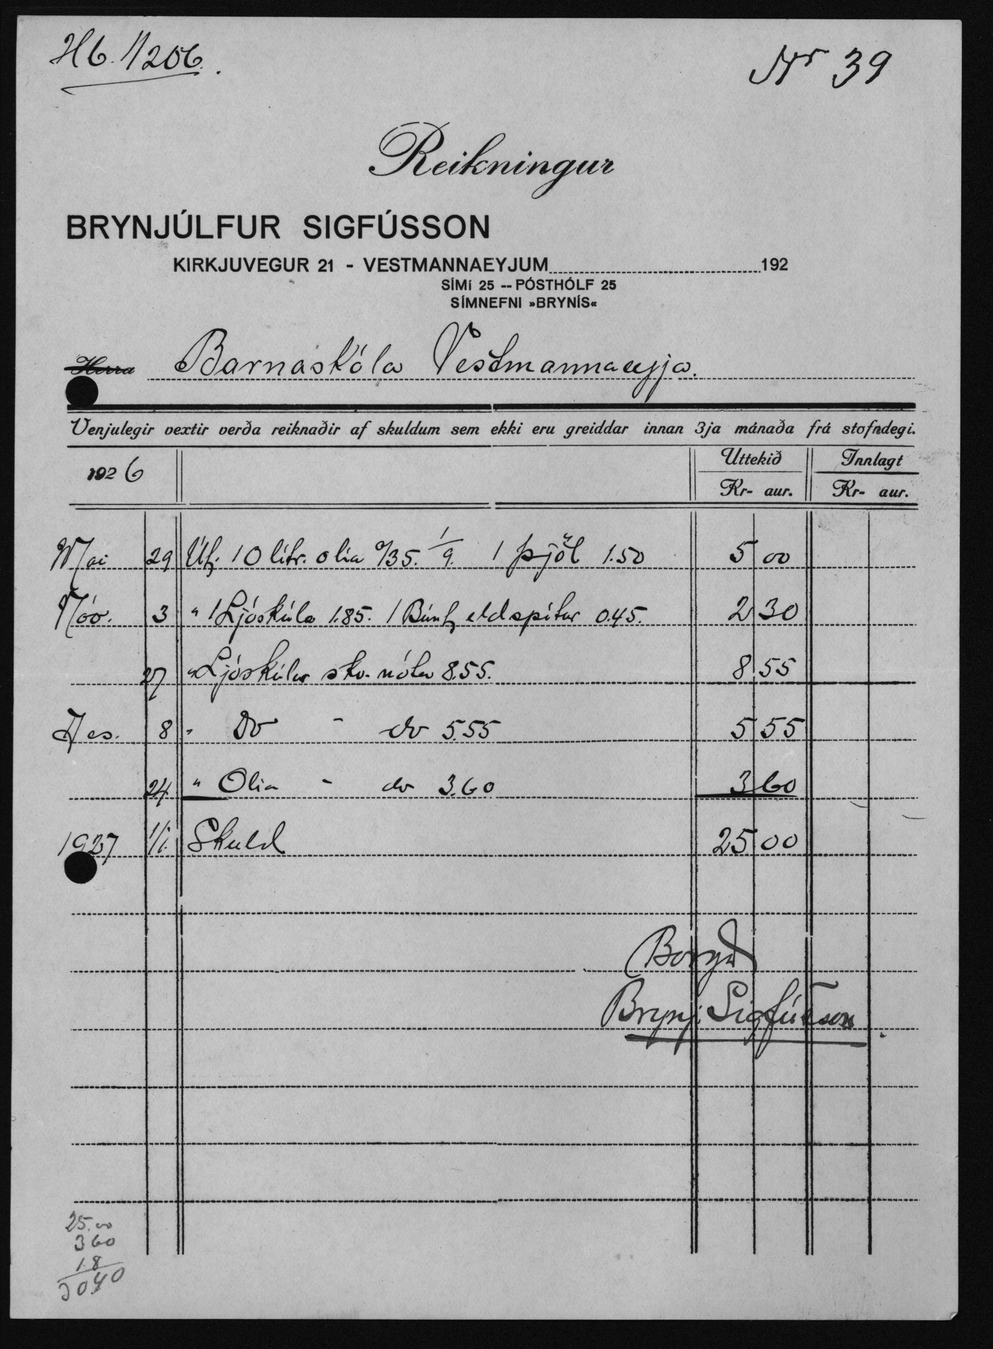 Hb. 1/206.
Nr 39
Reikningur
BRYNJÚLFUR SIGFÚSSON
KIRKJUVEGUR 21 - VESTMANNAEYJUM 192
SÍMI 25 -- PÓSTHÓLF 25
SÍMNEFNI »BRYNÍS«
Herra Barnaskóla Vestmannaeyja.
Venjulegir vextir verða reiknaðir af skuldum sem ekki eru greiddar innan 3ja mánaða frá stofndegi.
1926 Úttekið Innlagt
Kr- aur. Kr- aur.
Mai 29 Út. 10 litr. olia 1 þjöl 1.50 5 00
Nóv. 3 " 1 Ljóskúla 1.85. 1 Búnt eldspítur 0.45. 2 30
27 " Ljóskúlur skv. nótu 8.55. 8 55
Des. 8 " Do - do 5.55 5 55
24. " Olia - do 3.60 3 60
1927 1/1. Skuld 25 00
Borgað
Brynj. Sigfússon.
25.00
3 60
1.8
3040